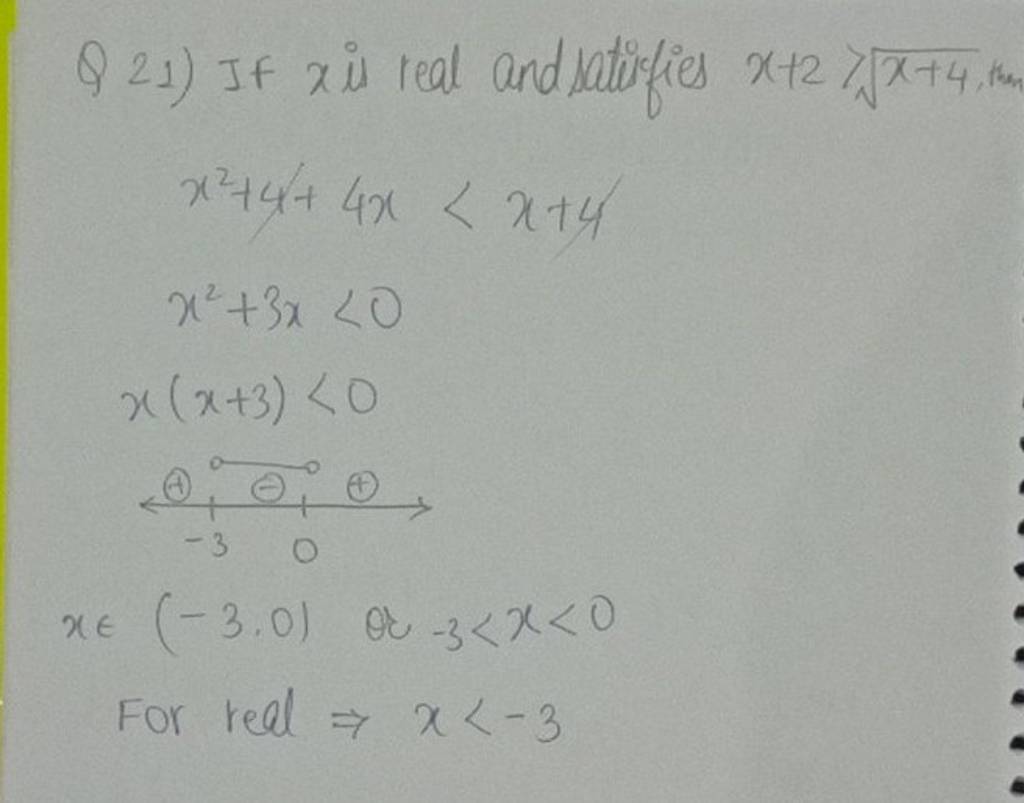 Q 21) If x is real and satisfies x+2 > √x+4, then
x²+4+ 4x < x+4
x²+3x <0
x(x+3) <0
+ - +
-3 0
x∈ (-3,0) or -3<x<0
For real ⇒ x<-3